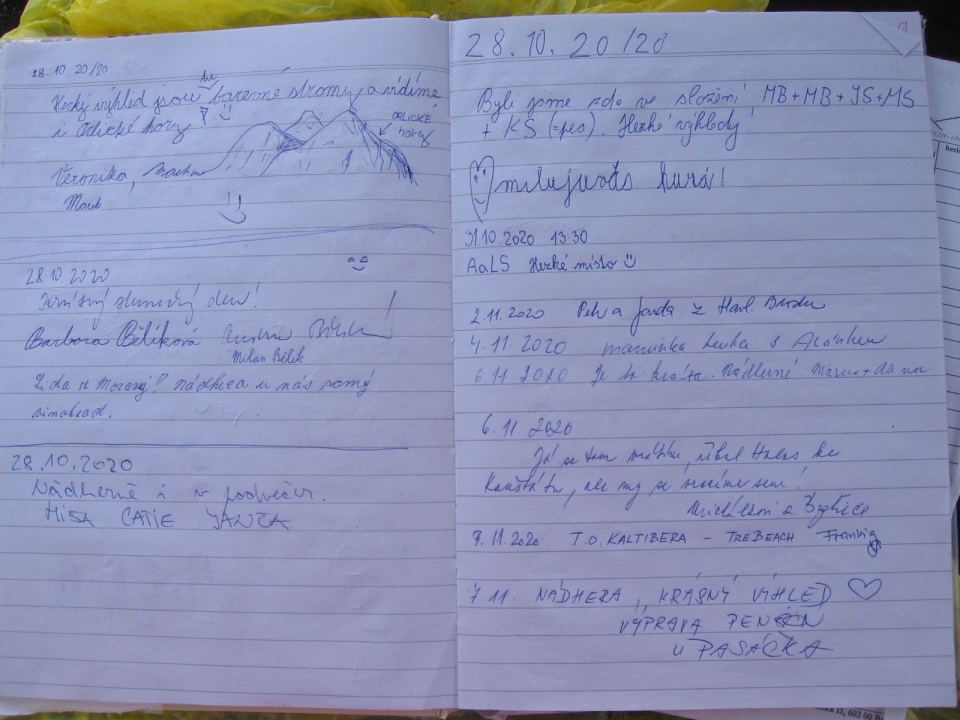 28.10.20/20
Hezký výhled jsou tu barevné stromy a vidíme
i Orlické hory
ORLICKÉ
HORY
Veronika,
Marek
28.10.2020
slunečný den!
Barbora Bělíková
Milan Bělík
Nádhera u nás samý
28.10.2020
Nádherně i v podvečer.
MÍSA CATIE JANČA
28.10.20/20
Byli jsme zde ve složení, MB+MB+JS+MS
+ KS (=pes). Hezké výhledy!
miluju vás hurá!
31.10.2020 13:30
AaLS Hezké místo
2.11.2020 Petr a Jarda z Havl. Brodu
4.11.2020 maminka Lenka s
6.11.2020 Je to krása. Nádherné.
6.11.2020
Já se tam vrátím, řekl Halas ke
Kunštátu, ale my se vrátíme sem!
z Bystřice
7.11.2020 T.O. KALTIBERA - TREBEACH
7.11. NÁDHERA, KRÁSNÝ VÝHLED
VÝPRAVA
U PASÁČKA
II, 602 00